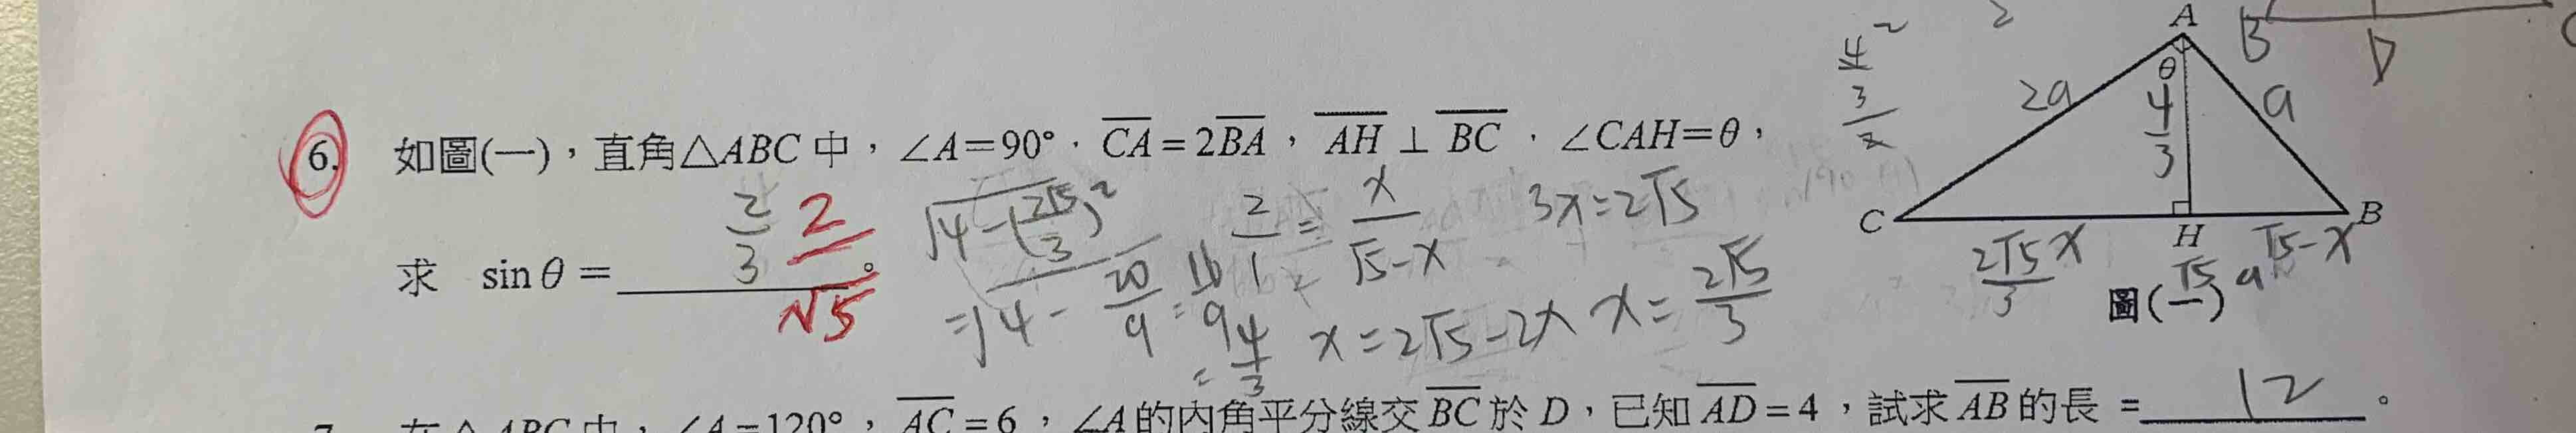 6. 如圖(一)，直角△ABC 中，∠A=90°，CA=2BA，AH⊥BC，∠CAH=θ，
求 sinθ=______。
2/3
2/√5
√4-(2√5/3)²
=√4-20/9=16/9
=4/3
2/1=x/√5-x
x=2√5-2x
3x=2√5
x=2√5/3
4/3
2
2
A
θ
2a
4/3
a
C
H
B
2√5/3
x
√5a
√5-x
圖(一)
B
D
在△ABC中，∠A=120°，AC=6，∠A的內角平分線交BC於D，已知AD=4，試求AB的長=12。